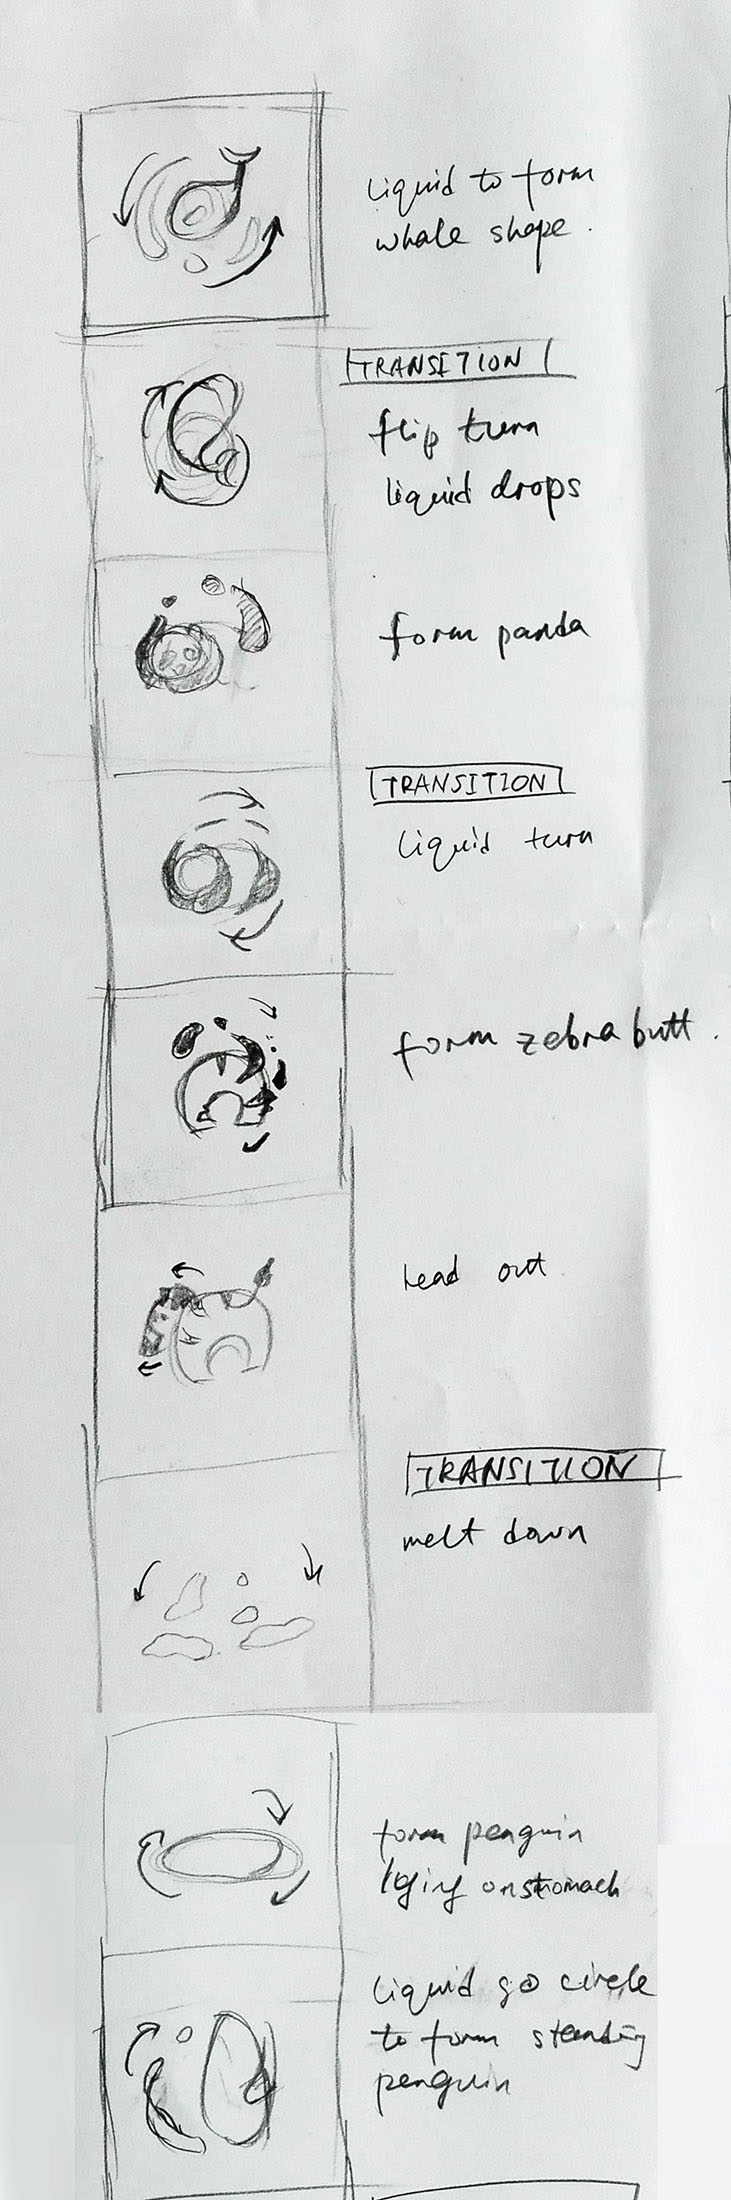 liquid to form
whale shape.
TRANSITION
flip turn
liquid drops
form panda
TRANSITION
liquid turn
form zebra butt.
head out
TRANSITION
melt down
form penguin
lying on stomach
liquid go circle
to form standing
penguin